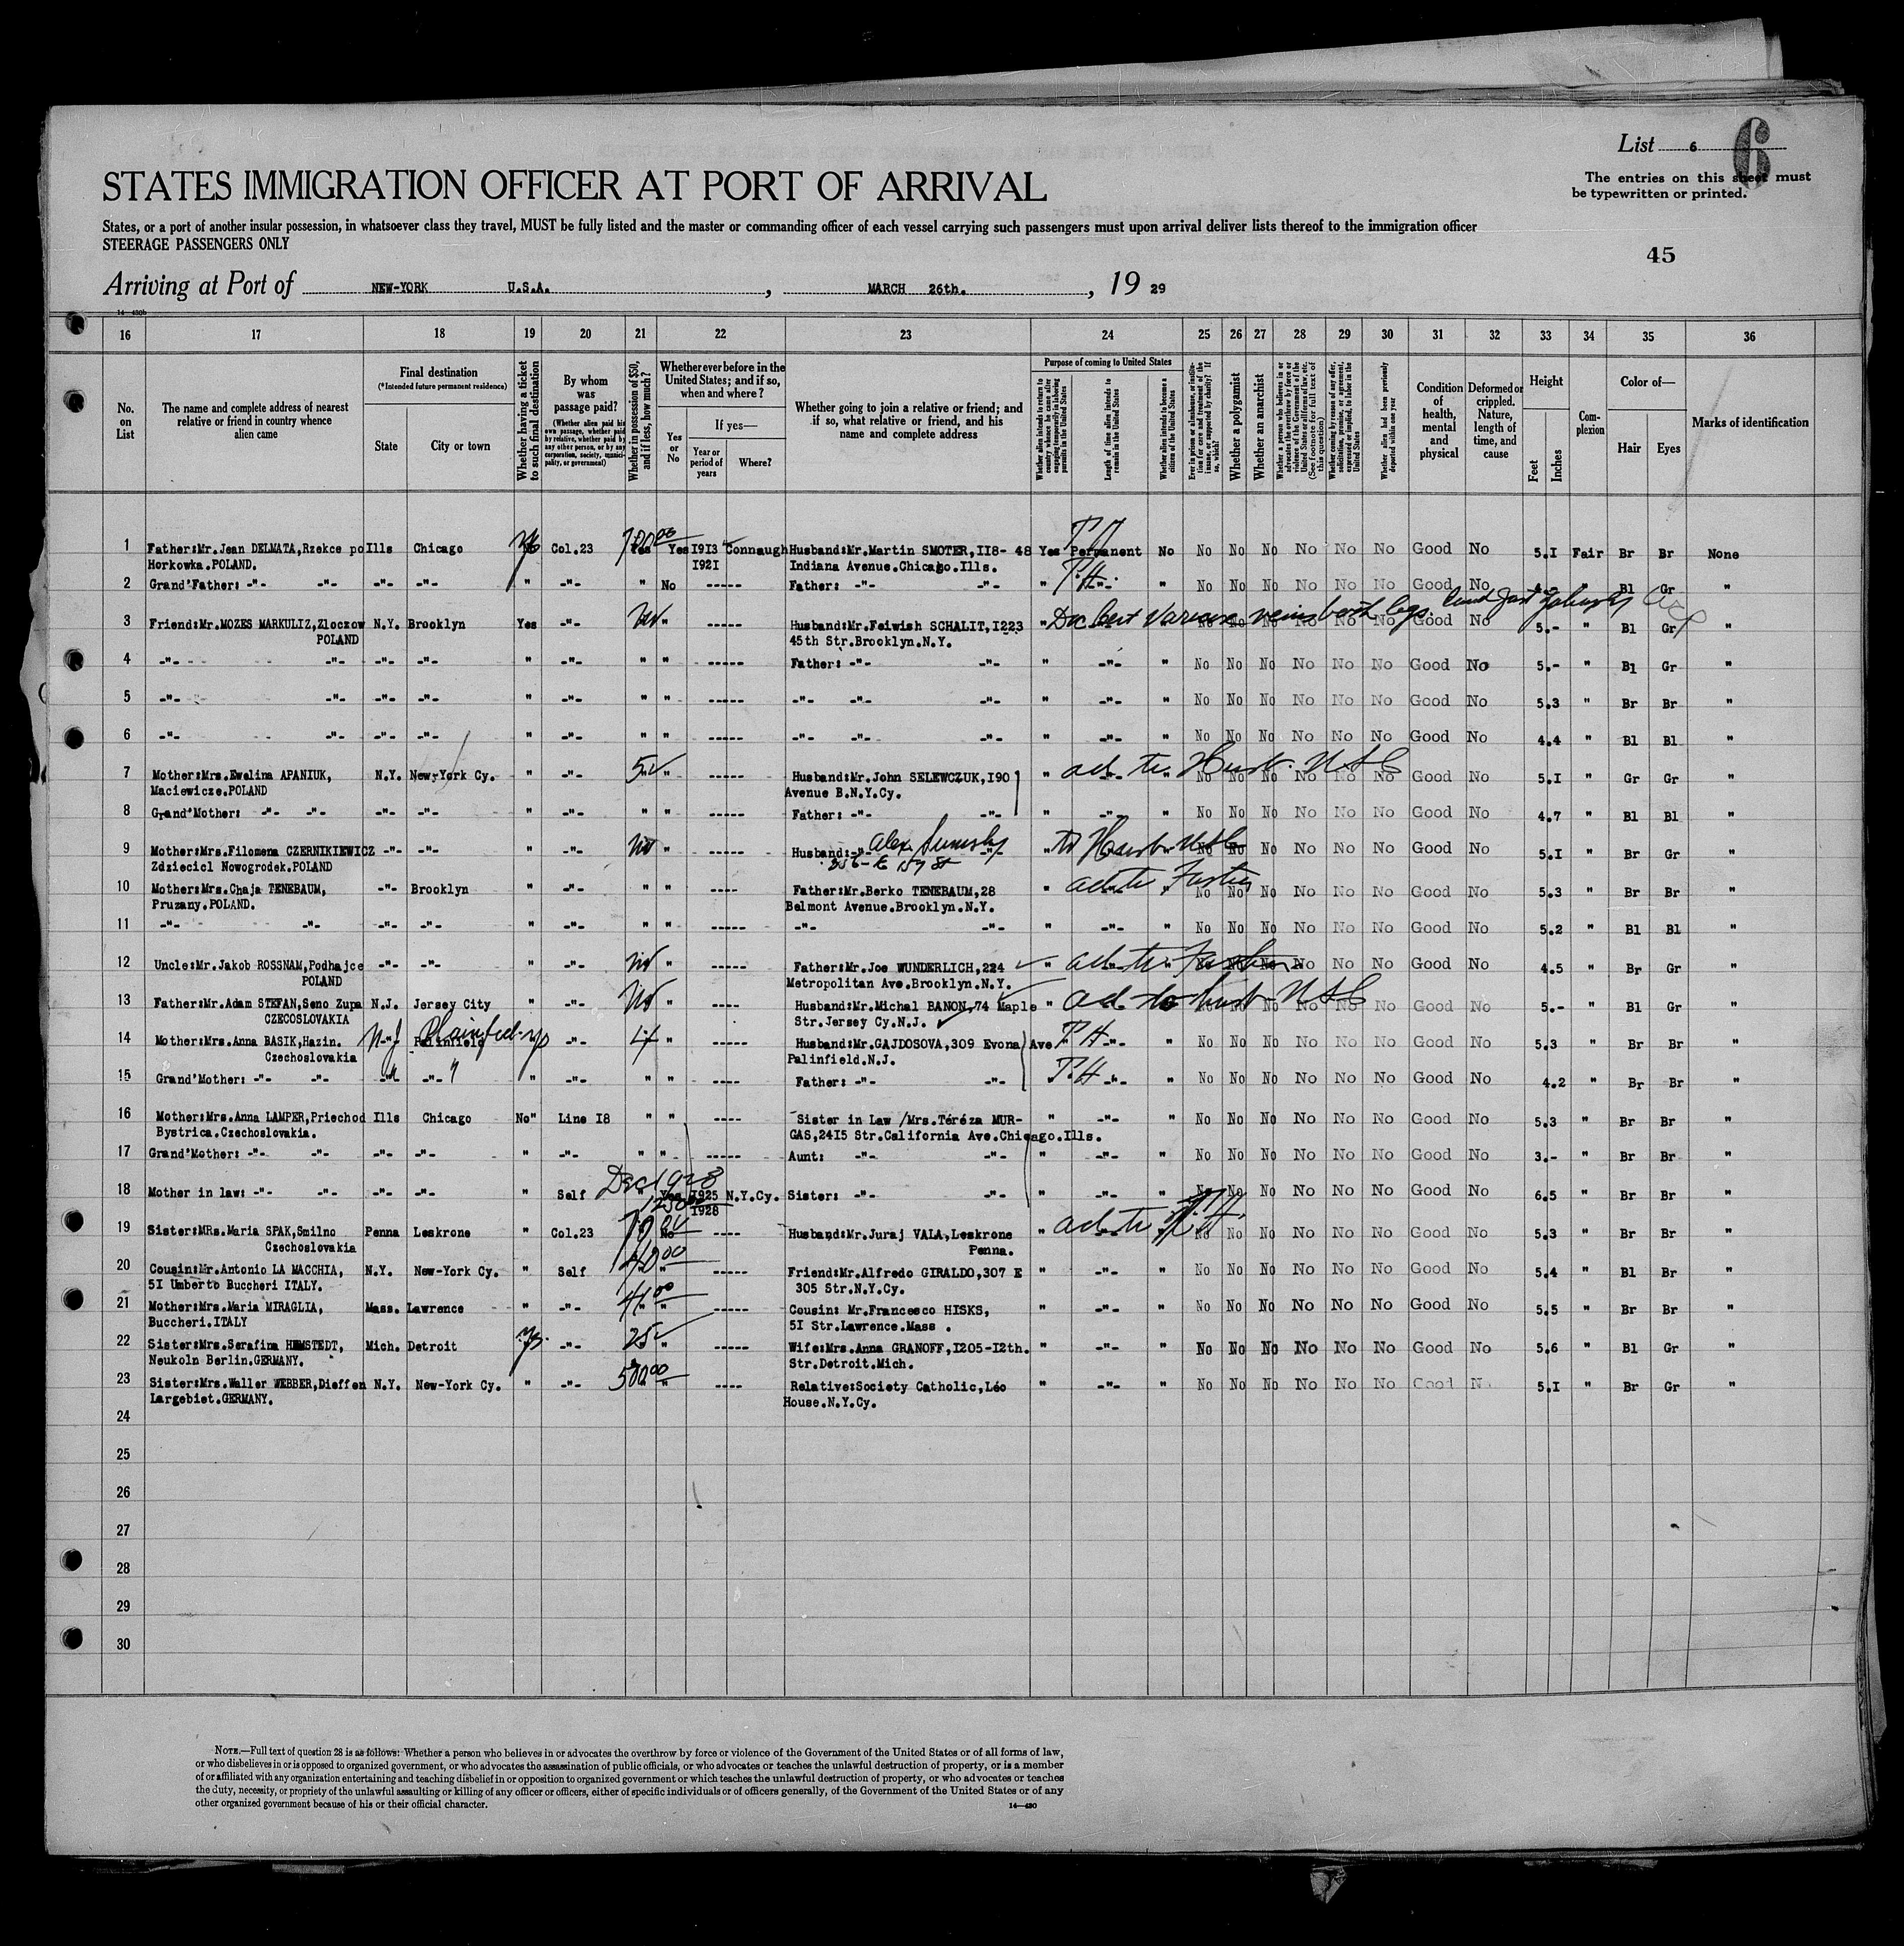 List 6
6
The entries on this sheet must
be typewritten or printed.
STATES IMMIGRATION OFFICER AT PORT OF ARRIVAL
States, or a port of another insular possession, in whatsoever class they travel, MUST be fully listed and the master or commanding officer of each vessel carrying such passengers must upon arrival deliver lists thereof to the immigration officer
STEERAGE PASSENGERS ONLY
45
Arriving at Port of NEW-YORK U.S.A. , MARCH 26th. , 19 29
16 17 18 19 20 21 22 23 24 25 26 27 28 29 30 31 32 33 34 35 36
No. on List
The name and complete address of nearest relative or friend in country whence alien came
Final destination
(*Intended future permanent residence)
State
City or town
Whether having a ticket to such final destination
By whom was passage paid?
(Whether alien paid his own passage, whether paid by relative, whether paid by any other person, or by any corporation, society, municipality, or government)
Whether in possession of $50, and if less, how much?
Whether ever before in the United States; and if so, when and where?
Yes or No
If yes—
Year or period of years
Where?
Whether going to join a relative or friend; and if so, what relative or friend, and his name and complete address
Purpose of coming to United States
Whether alien intends to return to country whence he came after engaging temporarily in laboring pursuits in the United States
Length of time alien intends to remain in the United States
Whether alien intends to become a citizen of the United States
Ever in prison or almshouse, or institution for care and treatment of the insane, or supported by charity? If so, which?
Whether a polygamist
Whether an anarchist
Whether a person who believes in or advocates the overthrow by force or violence of the Government of the United States or all forms of law, etc. (See footnote for full text of this question)
Whether coming by reason of any offer, solicitation, promise, or agreement, expressed or implied, to labor in the United States
Whether alien had been previously deported within one year
Condition of health, mental and physical
Deformed or crippled. Nature, length of time, and cause
Height
Feet
Inches
Complexion
Color of—
Hair
Eyes
Marks of identification
1 Father:Mr.Jean DELMATA,Rzekce po Ills Chicago Yes Col.23 Yes Yes 1913 Connaugh Husband:Mr.Martin SMOTER,118- 48 Yes Permanent No No No No No No No Good No 5.1 Fair Br Br None
Horkowka.POLAND. 1921 Indiana Avenue.Chicago.Ills.
2 Grand'Father: -"- -"- -"- -"- " -"- " No ----- Father: -"- -"- " -"- " No No No No No No Good No " Bl Gr "
3 Friend:Mr.MOZES MARKULIZ,Zloczow N.Y. Brooklyn Yes -"- " ----- Husband:Mr.Feiwish SCHALIT,1223 " Doc Cert Varicose veins both legs. No No No No No No Good No 5.- " Bl Gr "
POLAND 45th Str.Brooklyn.N.Y.
4 -"- -"- -"- -"- " -"- " " ----- Father: -"- -"- " -"- " No No No No No No Good No 5.- " Bl Gr "
5 -"- -"- -"- -"- " -"- " " ----- -"- -"- -"- " -"- " No No No No No No Good No 5.3 " Br Br "
6 -"- -"- -"- -"- " -"- " " ----- -"- -"- -"- " -"- " No No No No No No Good No 4.4 " Bl Bl "
7 Mother:Mrs.Ewelina APANIUK, N.Y. New-York Cy. " -"- " ----- Husband:Mr.John SELEWCZUK,190 " ad. to Husb. USC No No No No No No Good No 5.1 " Gr Gr "
Maciewicze.POLAND Avenue B.N.Y.Cy.
8 Grand'Mother: -"- -"- -"- -"- " -"- " " ----- Father: -"- -"- " -"- " No No No No No No Good No 4.7 " Bl Bl "
9 Mother:Mrs.Filomena CZERNIKIEWICZ -"- -"- " -"- " ----- Husband:-"- Alex -"- " to Husb. USC No No No No No No Good No 5.1 " Br Gr "
Zdziecicl Nowogrodek.POLAND
10 Mother:Mrs.Chaja TENEBAUM, -"- Brooklyn " -"- " " ---- Father:Mr.Berko TENEBAUM,28 " ad to Father No No No No No No Good No 5.3 " Br Br "
Pruzany.POLAND. Belmont Avenue.Brooklyn.N.Y.
11 -"- -"- -"- -"- " -"- " " ----- -"- -"- " -"- " No No No No No No Good No 5.2 " Bl Bl "
12 Uncle:Mr.Jakob ROSSNAM,Podhajce -"- -"- " -"- " ----- Father:Mr.Joe WUNDERLICH,224 " ad to Father No No No No No No Good No 4.5 " Br Gr "
POLAND Metropolitan Ave.Brooklyn.N.Y.
13 Father:Mr.Adam STEFAN,Seno Zupa N.J. Jersey City " -"- " ----- Husband:Mr.Michal BANON,74 Maple " ad to husb USC No No No No No No Good No 5.- " Bl Gr "
CZECOSLOVAKIA Str.Jersey Cy.N.J.
14 Mother:Mrs.Anna BASIK,Hazin. N.J Plainfield Palinfield -"- " ----- Husband:Mr.GAJDOSOVA,309 Evona Ave " -"- " No No No No No No Good No 5.3 " Br Br "
Czechoslovakia Palinfield.N.J.
15 Grand'Mother: -"- -"- -"- -"- " -"- " " ---- Father: -"- -"- -"- " No No No No No No Good No 4.2 " Br Br "
16 Mother:Mrs.Anna LAMPER,Priechod Ills Chicago No" Line 18 " " ---- Sister in Law /Mrs.Téréza MUR- " -"- " No No No No No No Good No 5.3 " Br Br "
Bystrica.Czechoslovakia. GAS,2415 Str.California Ave.Chicago.Ills.
17 Grand'Mother: -"- -"- -"- -"- " -"- " " ----- Aunt: -"- -"- " -"- " No No No No No No Good No 3.- " Br Br "
18 Mother in law: -"- -"- -"- -"- " Self Dec 1928 Yes 1925 N.Y.Cy. Sister: -"- -"- " -"- " No No No No No No Good No 6.5 " Br Br "
1928
19 Sister:MRs.Maria SPAK,Smilno Penna Leskrone " Col.23 No ---- Husband:Mr.Juraj VALA,Leskrone " ad to No No No No No No Good No 5.3 " Br Br "
Czechoslovakia Penna.
20 Cousin:Mr.Antonio LA MACCHIA, N.Y. New-York Cy. " Self 40 00 " ----- Friend:Mr.Alfredo GIRALDO,307 E " -"- " No No No No No No Good No 5.4 " Bl Br "
51 Umberto Buccheri ITALY. 305 Str.N.Y.Cy.
21 Mother:Mrs.Maria MIRAGLIA, Mass. Lawrence " -"- " ----- Cousin: Mr.Francesco HISKS, " -"- " No No No No No No Good No 5.5 " Br Br "
Buccheri.ITALY 51 Str.Lawrence.Mass .
22 Sister:Mrs.Serafina HEMSTEDT, Mich. Detroit Yes -"- 25 " ----- Wife:Mrs.Anna GRANOFF,1205-12th. " -"- " No No No No No No Good No 5.6 " Bl Gr "
Neukoln Berlin.GERMANY. Str.Detroit.Mich.
23 Sister:Mrs.Waller WEBBER,Dieffen N.Y. New-York Cy. " -"- 500 00 " ---- Relative:Society Catholic,Léo " -"- " No No No No No No Good 5.1 " Br Gr "
Largebiet.GERMANY. House.N.Y.Cy.
24
25
26
27
28
29
30
NOTE.—Full text of question 28 is as follows: Whether a person who believes in or advocates the overthrow by force or violence of the Government of the United States or of all forms of law,
or who disbelieves in or is opposed to organized government, or who advocates the assassination of public officials, or who advocates or teaches the unlawful destruction of property, or is a member
of or affiliated with any organization entertaining and teaching disbelief in or opposition to organized government or which teaches the unlawful destruction of property, or who advocates or teaches
the duty, necessity, or propriety of the unlawful assaulting or killing of any officer or officers, either of specific individuals or of officers generally, of the Government of the United States or of any
other organized government because of his or their official character.
14—430